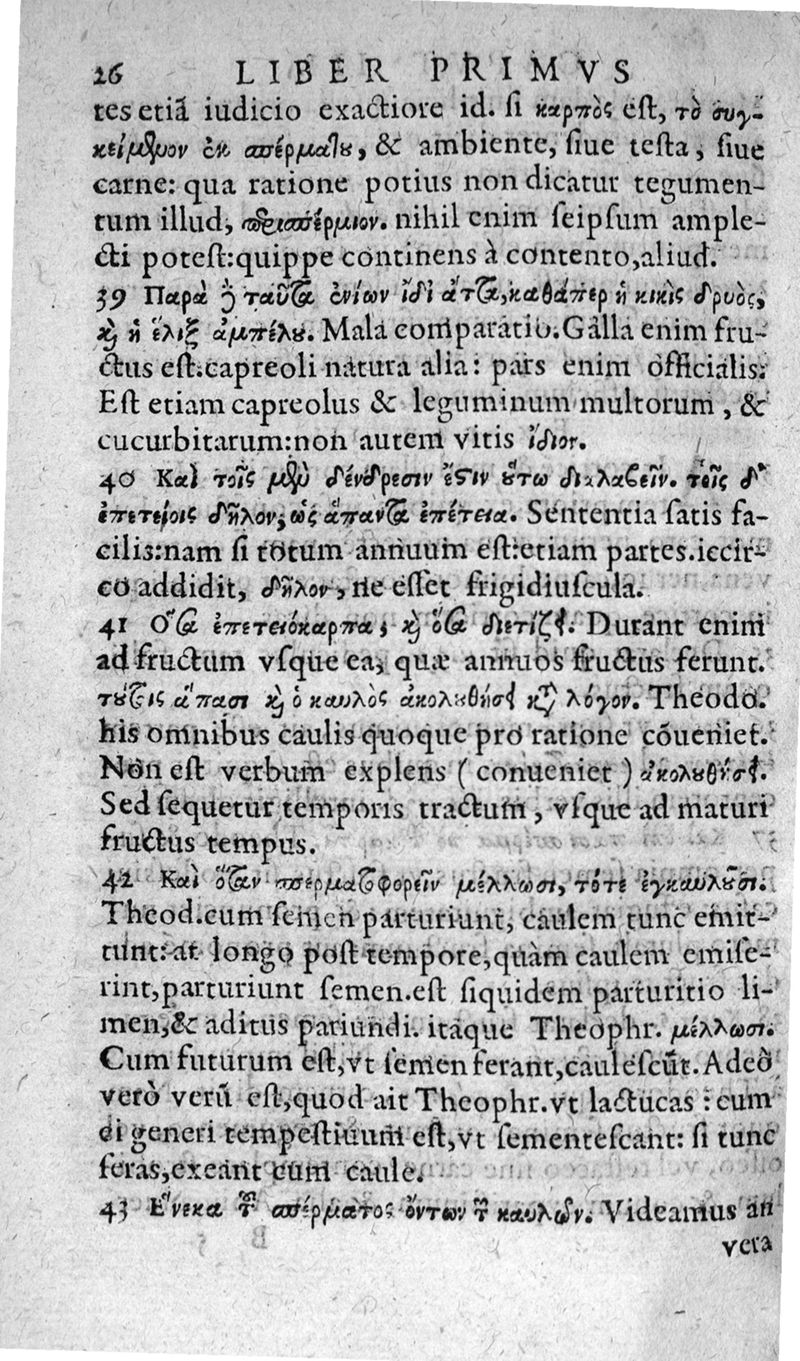 26 LIBER PRIMVS
tes etiã iudicio exactiore id. si καρπὸς est, τὸ συγ-
κείμενον ἐκ σπέρματου, & ambiente, siue testa, siue
carne: qua ratione potius non dicatur tegumen-
tum illud, περισπέρμιον. nihil enim seipsum ample-
cti potest: quippe continens à contento, aliud.
39 Παρὰ ἢ ταῦτα ἐνίων ἴδι ἄττα, καθάπερ ἡ κικὶς δρυὸς,
καὶ ἡ ἕλιξ ἀμπέλου. Mala comparatio. Galla enim fru-
ctus est. capreoli natura alia: pars enim officialis.
Est etiam capreolus & leguminum multorum, &
cucurbitarum: non autem vitis ἴδιον.
40 Καὶ τοῖς μὲν δένδρεσιν ἔστιν οὕτω διαλαβεῖν. τοῖς δ'
ἐπετείοις δῆλον, ὡς ἅπαντα ἐπέτεια. Sententia satis fa-
cilis: nam si totum annuum est: etiam partes. iccir-
co addidit, δῆλον, ne esset frigidiuscula.
41 Ὅσα ἐπετειόκαρπα, καὶ ὅσα διετίζει. Durant enim
ad fructum vsque ea, quæ annuos fructus ferunt.
τούτοις ἅπασι καὶ ὁ καυλὸς ἀκολουθήσει κατὰ λόγον. Theodo.
his omnibus caulis quoque pro ratione cõueniet.
Non est verbum explens (conueniet) ἀκολουθήσει.
Sed sequetur temporis tractum, vsque ad maturi
fructus tempus.
42 Καὶ ὅταν σπερματοφορεῖν μέλλωσι, τότε ἐγκαυλοῦσι.
Theod. cum semen parturiunt, caulem tunc emit-
tunt: at longo post tempore, quàm caulem emise-
rint, parturiunt semen. est siquidem parturitio li-
men, & aditus pariundi. itáque Theophr. μέλλωσι.
Cum futurum est, vt semen ferant, caulescũt. Adeò
verò verũ est, quod ait Theophr. vt lactucas: cum
ei generi tempestiuum est, vt sementescant: si tunc
seras, exeant cum caule.
43 Ἕνεκα τοῦ σπέρματος ὄντων τῶν καυλῶν. Videamus an
vera